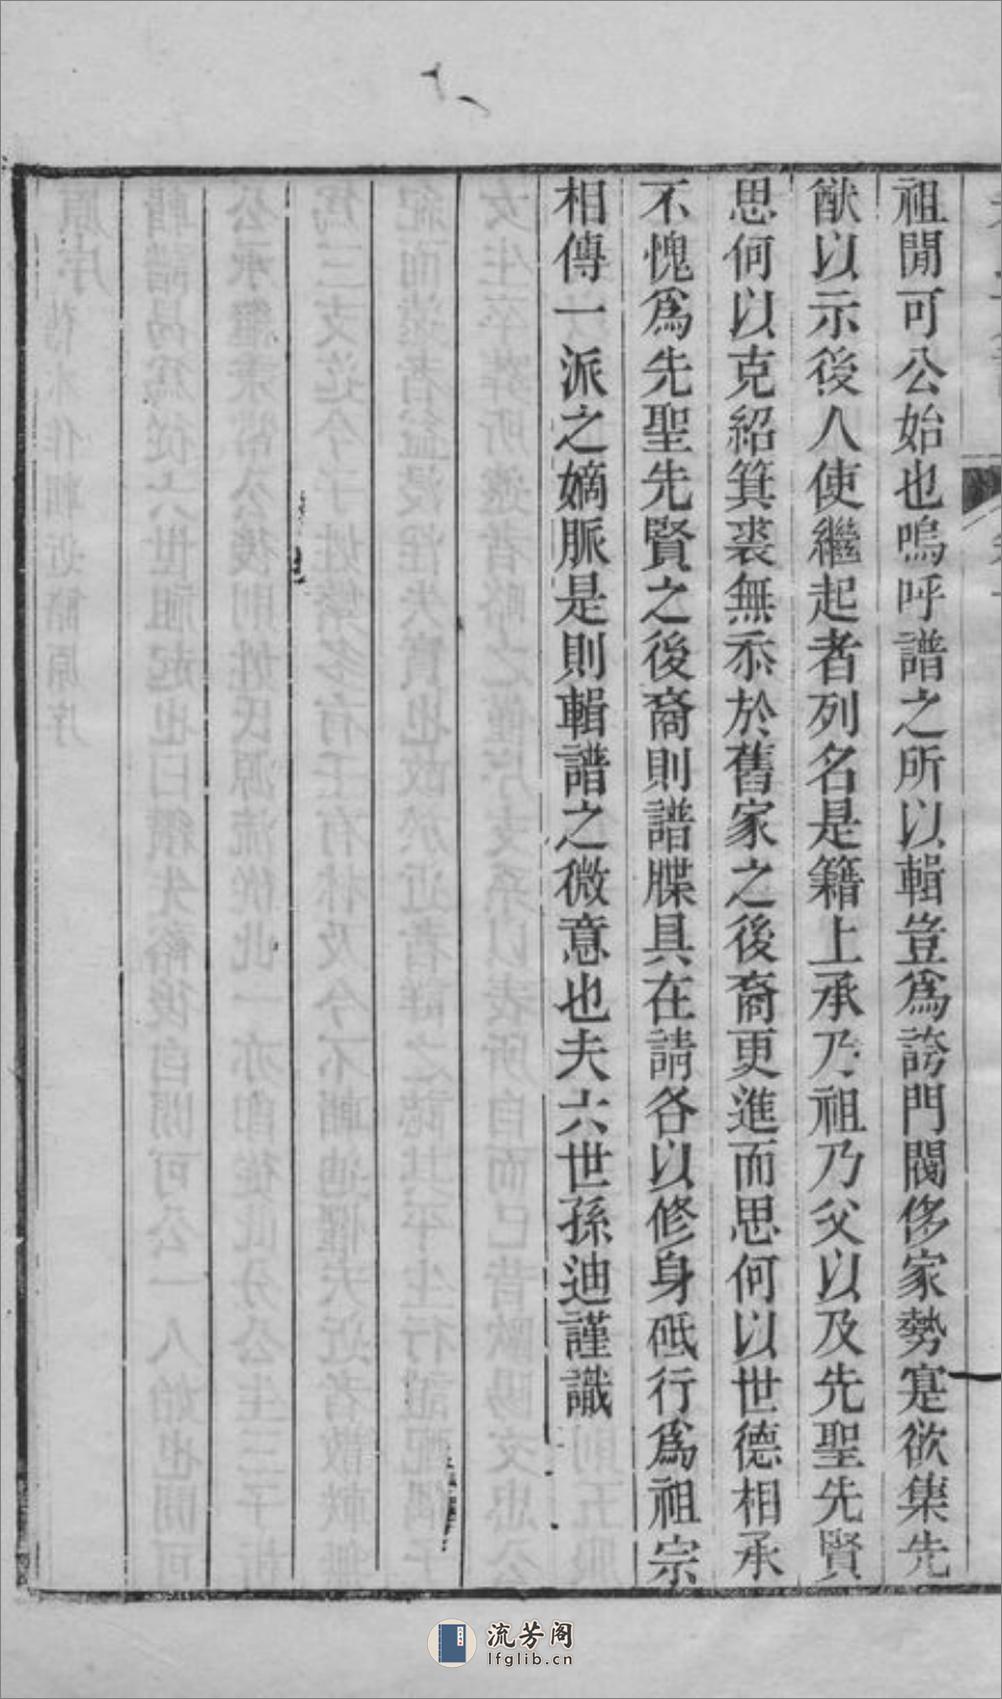 祖閒可公始也嗚呼譜之所以輯豈爲誇門閥侈家勢寔欲集先
猷以示後人使繼起者列名是籍上承乃祖乃父以及先聖先賢
思何以克紹箕裘無忝於舊家之後裔更進而思何以世德相承
不愧爲先聖先賢之後裔則譜牒具在請各以修身砥行爲祖宗
相傳一派之嫡脈是則輯譜之微意也夫六世孫迪謹識
流芳阁
lfglib.cn